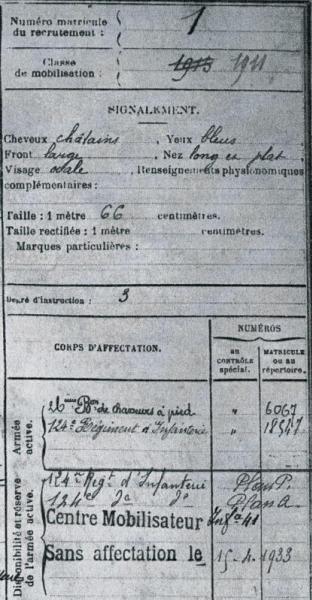 Numéro matricule
du recrutement :
1
Classe
de mobilisation :
1913 1911
SIGNALEMENT.
Cheveux châtains, Yeux bleus
Front large, Nez long et plat
Visage ovale, Renseignements physionomiques
complémentaires :
Taille : 1 mètre 66 centimètres.
Taille rectifiée : 1 mètre centimètres.
Marques particulières :
Degré d'instruction : 3
CORPS D'AFFECTATION.
NUMÉROS
au
CONTRÔLE
spécial.
MATRICULE
ou au
répertoire.
Armée
active.
26ème Bon de chasseurs à pied " 6067
124e Régiment d'Infanterie " 18547
Disponibilité et réserve
de l'armée active.
124me Régt d'Infanterie Plan P.
124e do do Plan A
Centre Mobilisateur Infie 41
Sans affectation le 15-4-1933